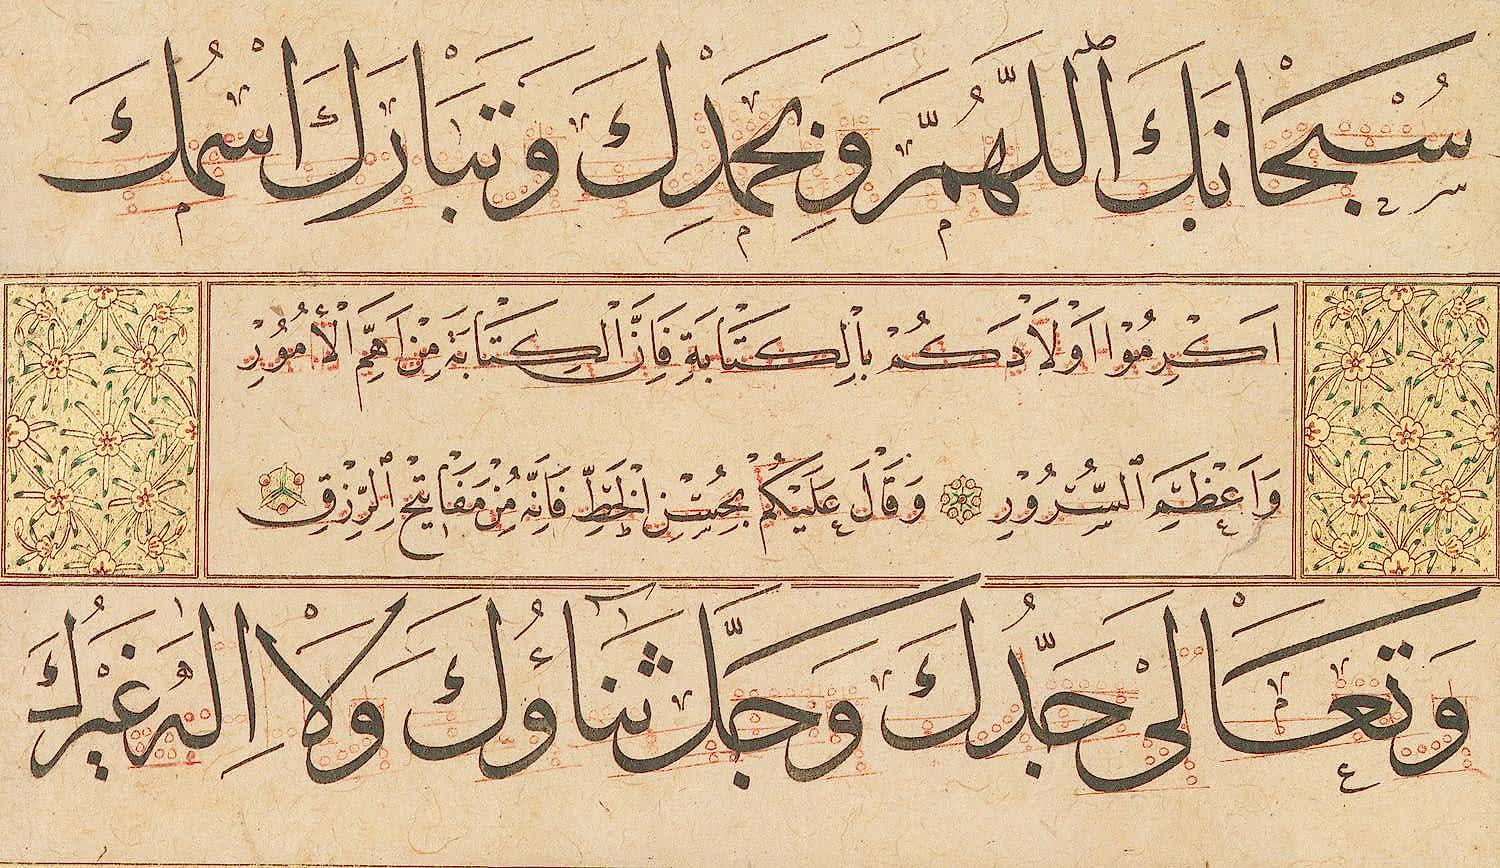 سُبْحَانَكَ اللّٰهُمَّ وَبِحَمْدِكَ وَتَبَارَكَ اسْمُكَ
اَكْرِمُوْا اَوْلَادَكُمْ بِالْكِتَابَةِ فَاِنَّ الْكِتَابَةَ مِنْ اَهَمِّ الْأُمُوْرِ
وَاَعْظَمِ السُّرُوْرِ وَقَالَ عَلَيْكُمْ بِحُسْنِ الْخَطِّ فَاِنَّهُ مِنْ مَفَاتِيْحِ الرِّزْقِ
وَتَعَالٰى جَدُّكَ وَجَلَّ ثَنَاؤُكَ وَلَا اِلٰهَ غَيْرُكَ